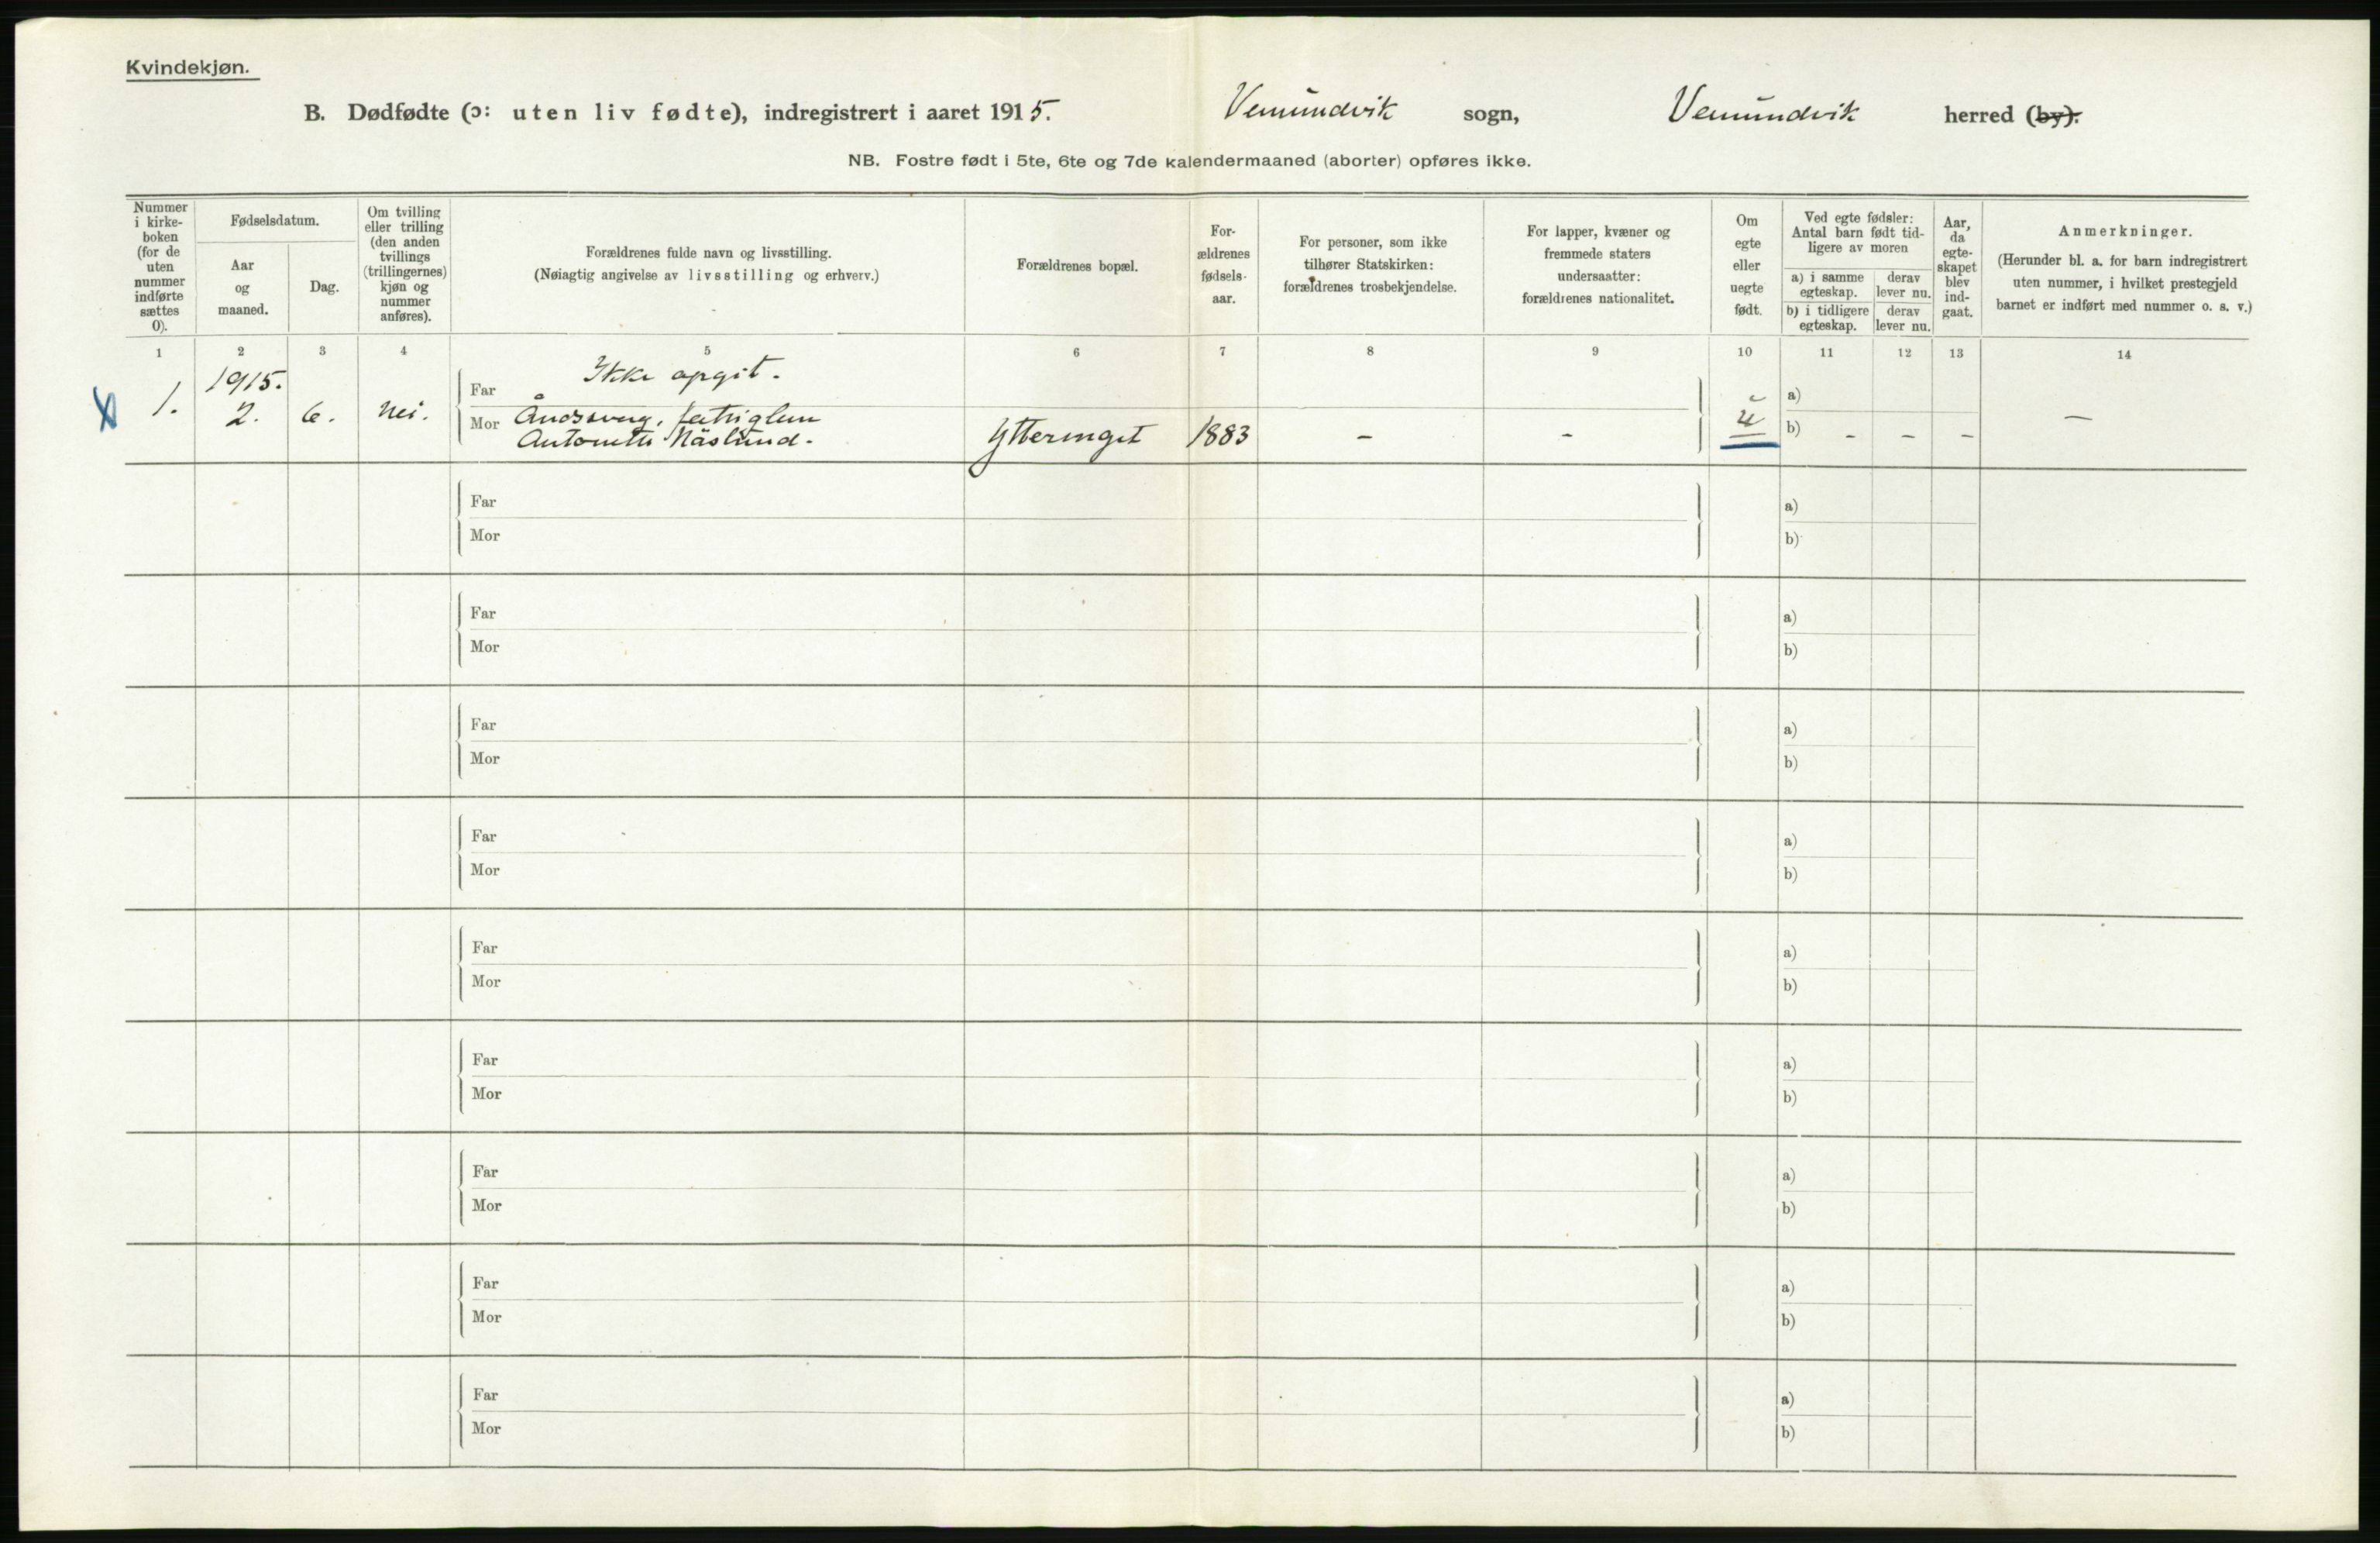 Kvindekjøn.
B. Dødfødte (ɔ: uten liv fødte), indregistrert i aaret 1915. Vemundvik sogn, Vemundvik herred (by).
NB. Fostre født i 5te, 6te og 7de kalendermaaned (aborter) opføres ikke.
Nummer
i kirke-
boken
(for de
uten
nummer
indførte
sættes
0).
Fødselsdatum.
Aar
og
maaned.
Dag.
Om tvilling
eller trilling
(den anden
tvillings
(trillingernes)
kjøn og
nummer
anføres).
Forældrenes fulde navn og livsstilling.
(Nøiagtig angivelse av livsstilling og erhverv.)
Forældrenes bopæl.
For-
ældrenes
fødsels-
aar.
For personer, som ikke
tilhører Statskirken:
forældrenes trosbekjendelse.
For lapper, kvæner og
fremmede staters
undersaatter:
forældrenes nationalitet.
Om
egte
eller
uegte
født.
Ved egte fødsler:
Antal barn født tid-
ligere av moren
a) i samme
egteskap.
derav
lever nu.
b) i tidligere
egteskap.
derav
lever nu.
Aar,
da
egte-
skapet
blev
ind-
gaat.
Anmerkninger.
(Herunder bl. a. for barn indregistrert
uten nummer, i hvilket prestegjeld
barnet er indført med nummer o. s. v.)
1 2 3 4 5 6 7 8 9 10 11 12 13 14
1915.
Far Ikke opgit.
a)
1. 2. 6. Nei.
Mor Åndssvag,
Antonette Näslund. Ytteringet 1883 - - u b) - - - -
Far a)
Mor b)
Far a)
Mor b)
Far a)
Mor b)
Far a)
Mor b)
Far a)
Mor b)
Far a)
Mor b)
Far a)
Mor b)
Far a)
Mor b)
Far a)
Mor b)